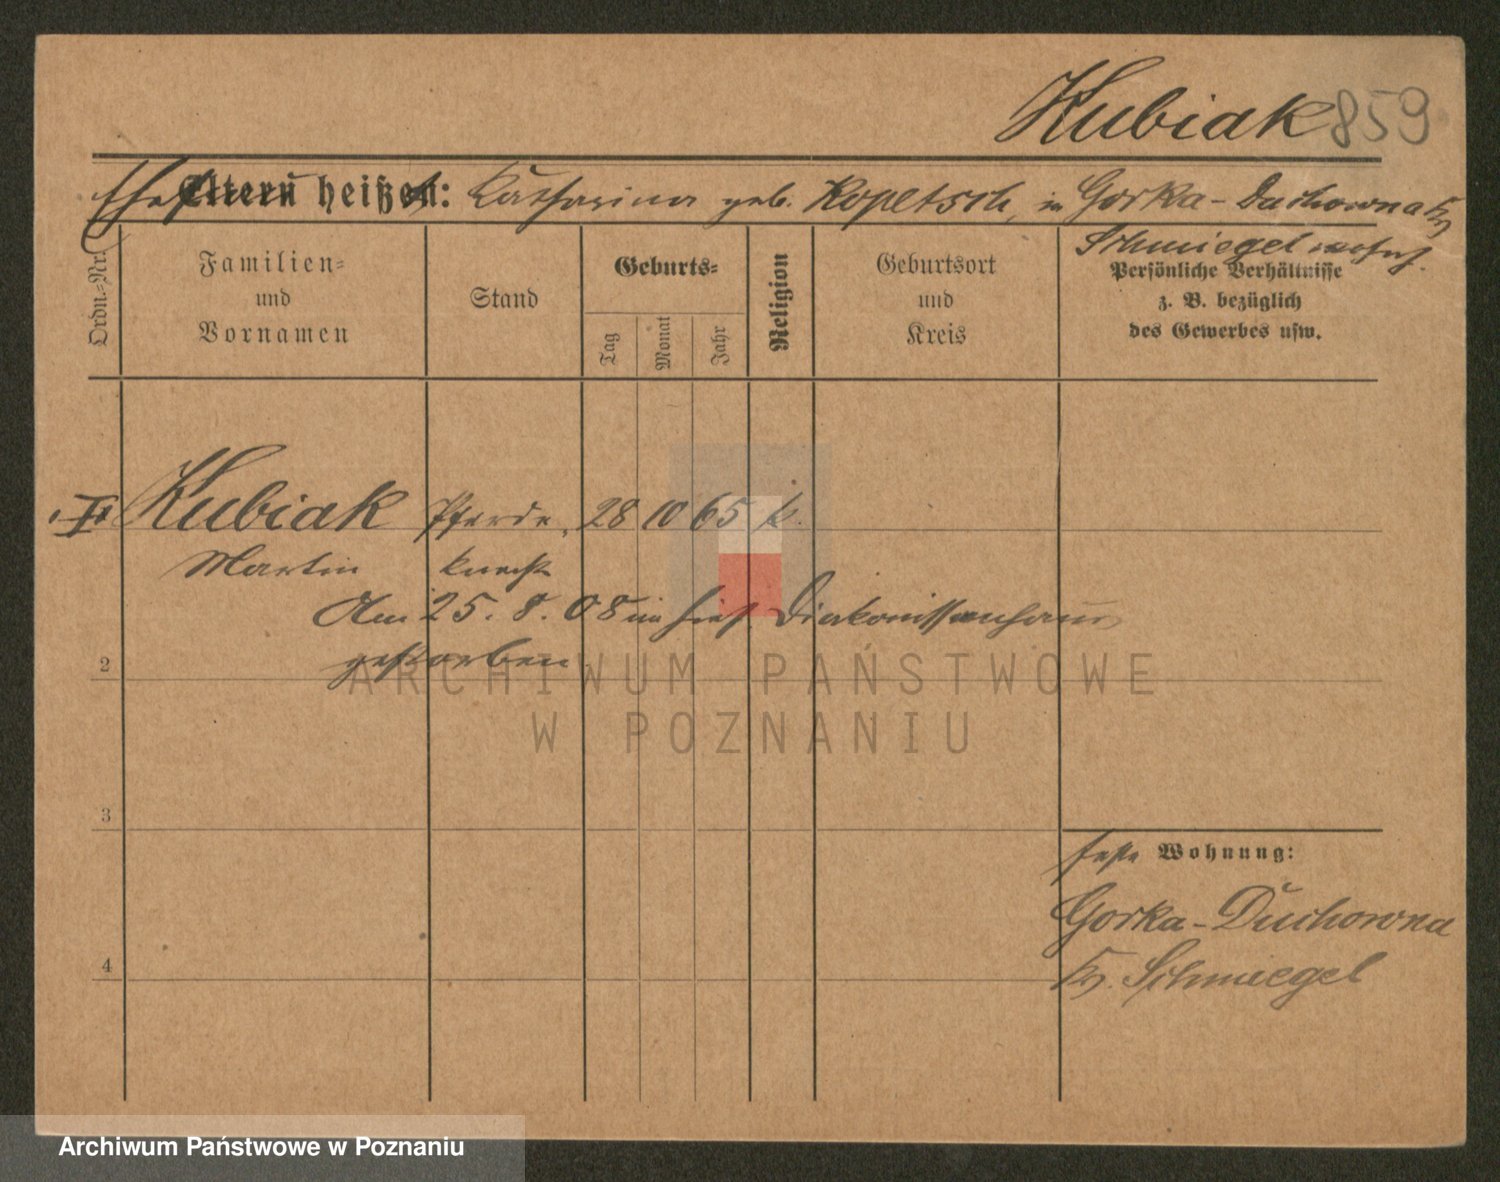 Kubiak 859
Ehefrau heißt: Katharina geb. Kopetsch, in Gorka-Duchowna Kr.
Schmiegel wohnh.
Ordn.-Nr.
Familien-
und
Vornamen
Stand
Geburts-
Tag
Monat
Jahr
Religion
Geburtsort
und
Kreis
Persönliche Verhältnisse
z. B. bezüglich
des Gewerbes usw.
Kubiak Pferde- 28 10 65 k.
Martin knecht
Am 25. 8. 08 im hies. Diakonissenhaus
gestorben.
2
ARCHIWUM PAŃSTWOWE
W POZNANIU
3
feste Wohnung:
Gorka-Duchowna
Kr. Schmiegel
4
Archiwum Państwowe w Poznaniu